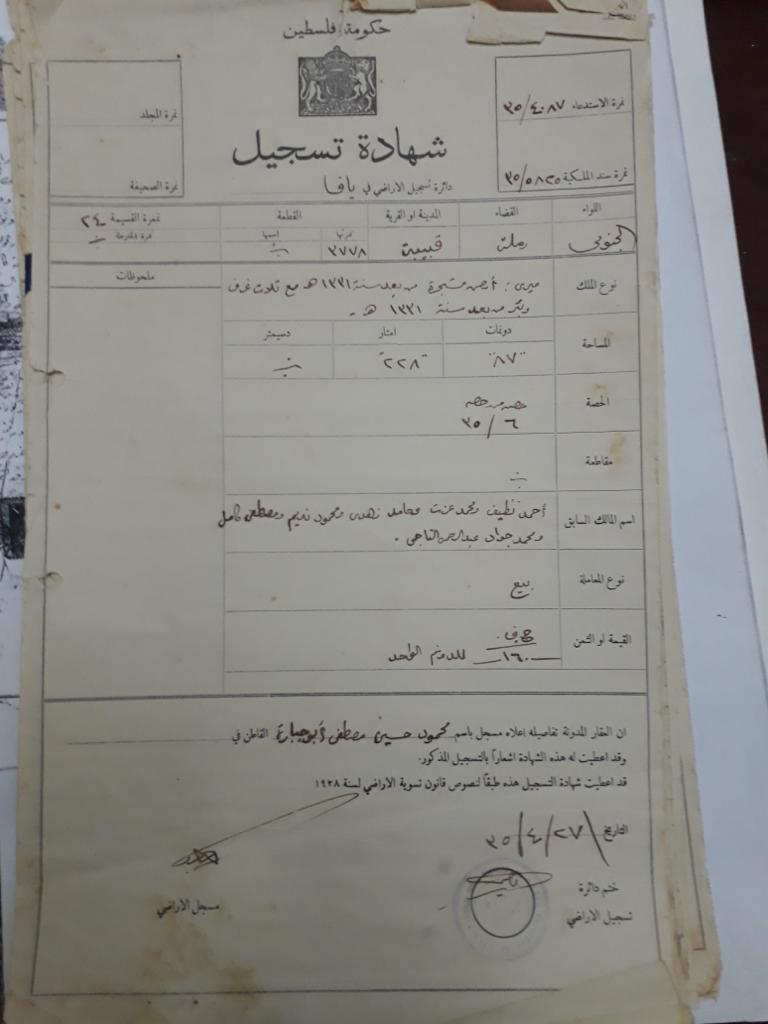 حكومة فلسطين
نمرة المجلد
نمرة الصحيفة
نمرة الاستدعاء ٣٥/٤٠٨٧
نمرة سند الملكية ٣٥/٥٨٢٥
شهادة تسجيل
دائرة تسجيل الاراضي في يافا
اللواء القضاء المدينة او القرية القطعة نمرة القسيمة ٢٤
نمرتها اسمها نمرة الخارطة
الجنوبي رملة قبيبة ٣٧٧٨
ملحوظات
نوع الملك ميري : أرض مشجرة من بعد سنة ١٣٣١ هـ مع ثلاث غرف
وبئر من بعد سنة ١٣٣١ هـ .
المساحة دونمات امتار دسيمتر
٨٧ ٢٢٨
الحصة حصه من حصه
٦ / ٣٥
مقاطعة
اسم المالك السابق أحمد نظيف ومحمد عزت وحامد زهدي ومحمود نديم ومصطفى كامل
ومحمد جواد عبد الرحمن التاجي .
نوع المعاملة بيع
القيمة او الثمن
١٦٠ للدونم الواحد
ان العقار المدونة تفاصيله اعلاه مسجل باسم محمود حسين مصطفى أبو جبارة القاطن في
وقد اعطيت له هذه الشهادة اشعاراً بالتسجيل المذكور.
قد اعطيت شهادة التسجيل هذه طبقاً لنصوص قانون تسوية الاراضي لسنة ١٩٢٨
التاريخ ٢٧/٤/٣٥
ختم دائرة
تسجيل الاراضي
مسجل الاراضي